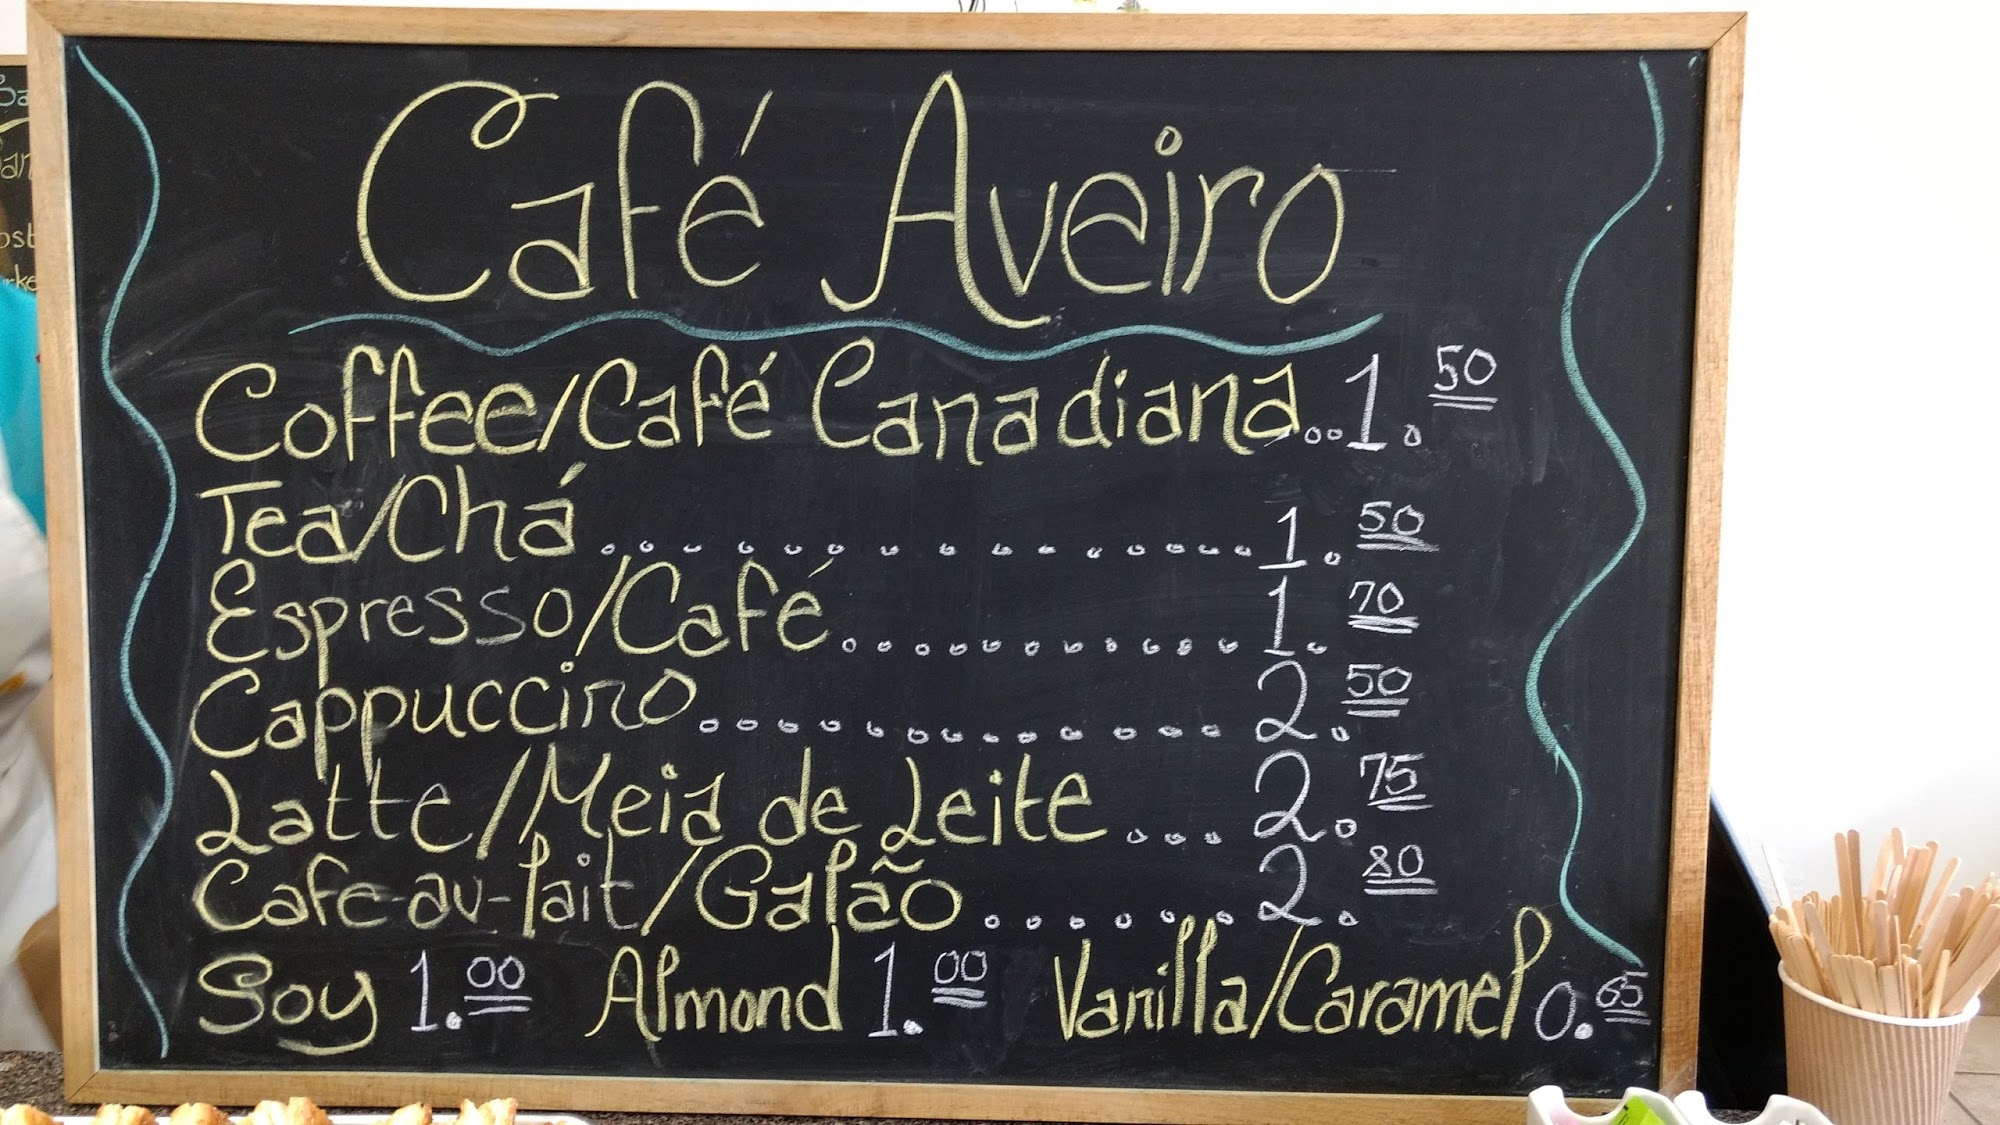 Café Aveiro
Coffee/Café Canadiana..1.50
Tea/Chá................1.50
Espresso/Café...........1.70
Cappuccino.............2.50
Latte/Meia de Leite...2.75
Cafe-au-lait/Galão.......2.80
Soy 1.00 Almond 1.00 Vanilla/Caramel 0.65